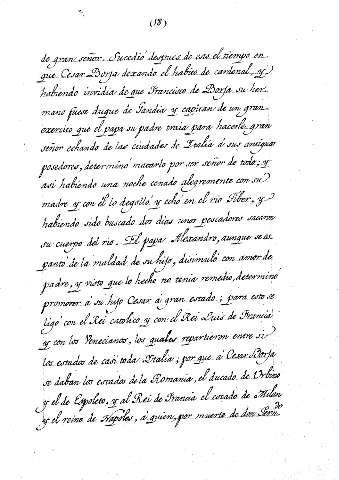 (18)
de gran señor. Sucedió despues de esto el tiempo en
que Cesar Borja dexando el habito de cardenal, y
habiendo invidia de que Francisco de Borja su her-
mano fuese duque de Gandia y capitan de un gran
exercito que el papa su padre tenia para hacerle gran
señor echando de las ciudades de Italia á sus antiguos
posedores, determinó matarlo por ser señor de todo; y
asi habiendo una noche cenado alegremente con su
madre y con él lo degolló y echó en el rio Tiber, y
habiendo sido buscado dos dias unos pescadores sacaron
su cuerpo del rio. El papa Alexandro, aunque se es-
pantó de la maldad de su hijo, disimuló con amor de
padre, y visto que lo hecho no tenia remedio, determinó
promover á su hijo Cesar á gran estado; para esto se
ligó con el Rei catolico y con el Rei Luis de Francia
y con los Venecianos, los quales repartieron entre si
los estados de casi toda Italia; por que á Cesar Borja
se daban los estados de la Romania, el ducado de Urbino
y el de Espoleto, y al Rei de Francia el estado de Milan
y el reino de Napoles, á quien, por muerte de don Fern.do